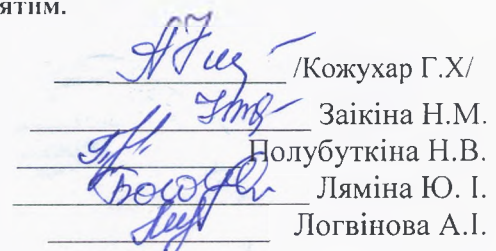 ятим.
/Кожухар Г.Х/
Заікіна Н.М.
Полубуткіна Н.В.
Ляміна Ю. І.
Логвінова А.І.